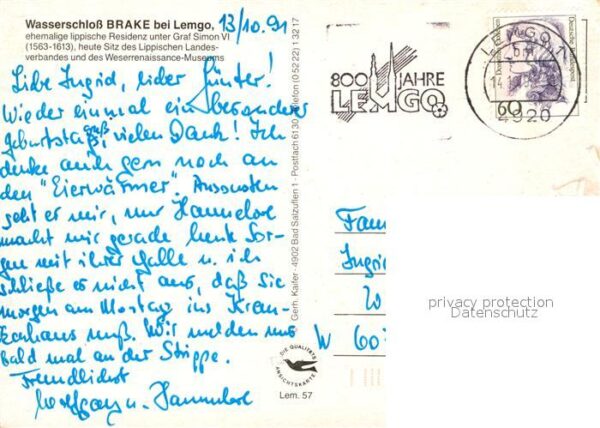 Wasserschloß BRAKE bei Lemgo,
ehemalige lippische Residenz unter Graf Simon VI
(1563-1613), heute Sitz des Lippischen Landes-
verbandes und des Weserrenaissance-Museums
13/10.91
Liebe Ingrid, lieber Günter!
Wieder einmal ein besonderer
Geburtstagsgruß, vielen Dank! Ich
denke auch gern noch an
den "Eierwärmer". Ansonsten
geht es mir, nur Hannelore
macht mir gerade heute Sor-
gen mit ihrer Galle u. ich
schließe es nicht aus, daß Sie
morgen am Montag ins Kran-
kenhaus muß. Wir melden uns
bald mal an der Strippe.
Freundlichst
Wolfgang u. Hannelore
Gerh. Kaifer · 4902 Bad Salzuflen 1 · Postfach 6130 · Telefon (05222) 13217
800 JAHRE
LEMGO
LEMGO 1
4920
60
Deutsche Bundespost
Fam
Ingrid
W 60
privacy protection
Datenschutz
DIE QUALITÄTS
ANSICHTSKARTE
Lem. 57